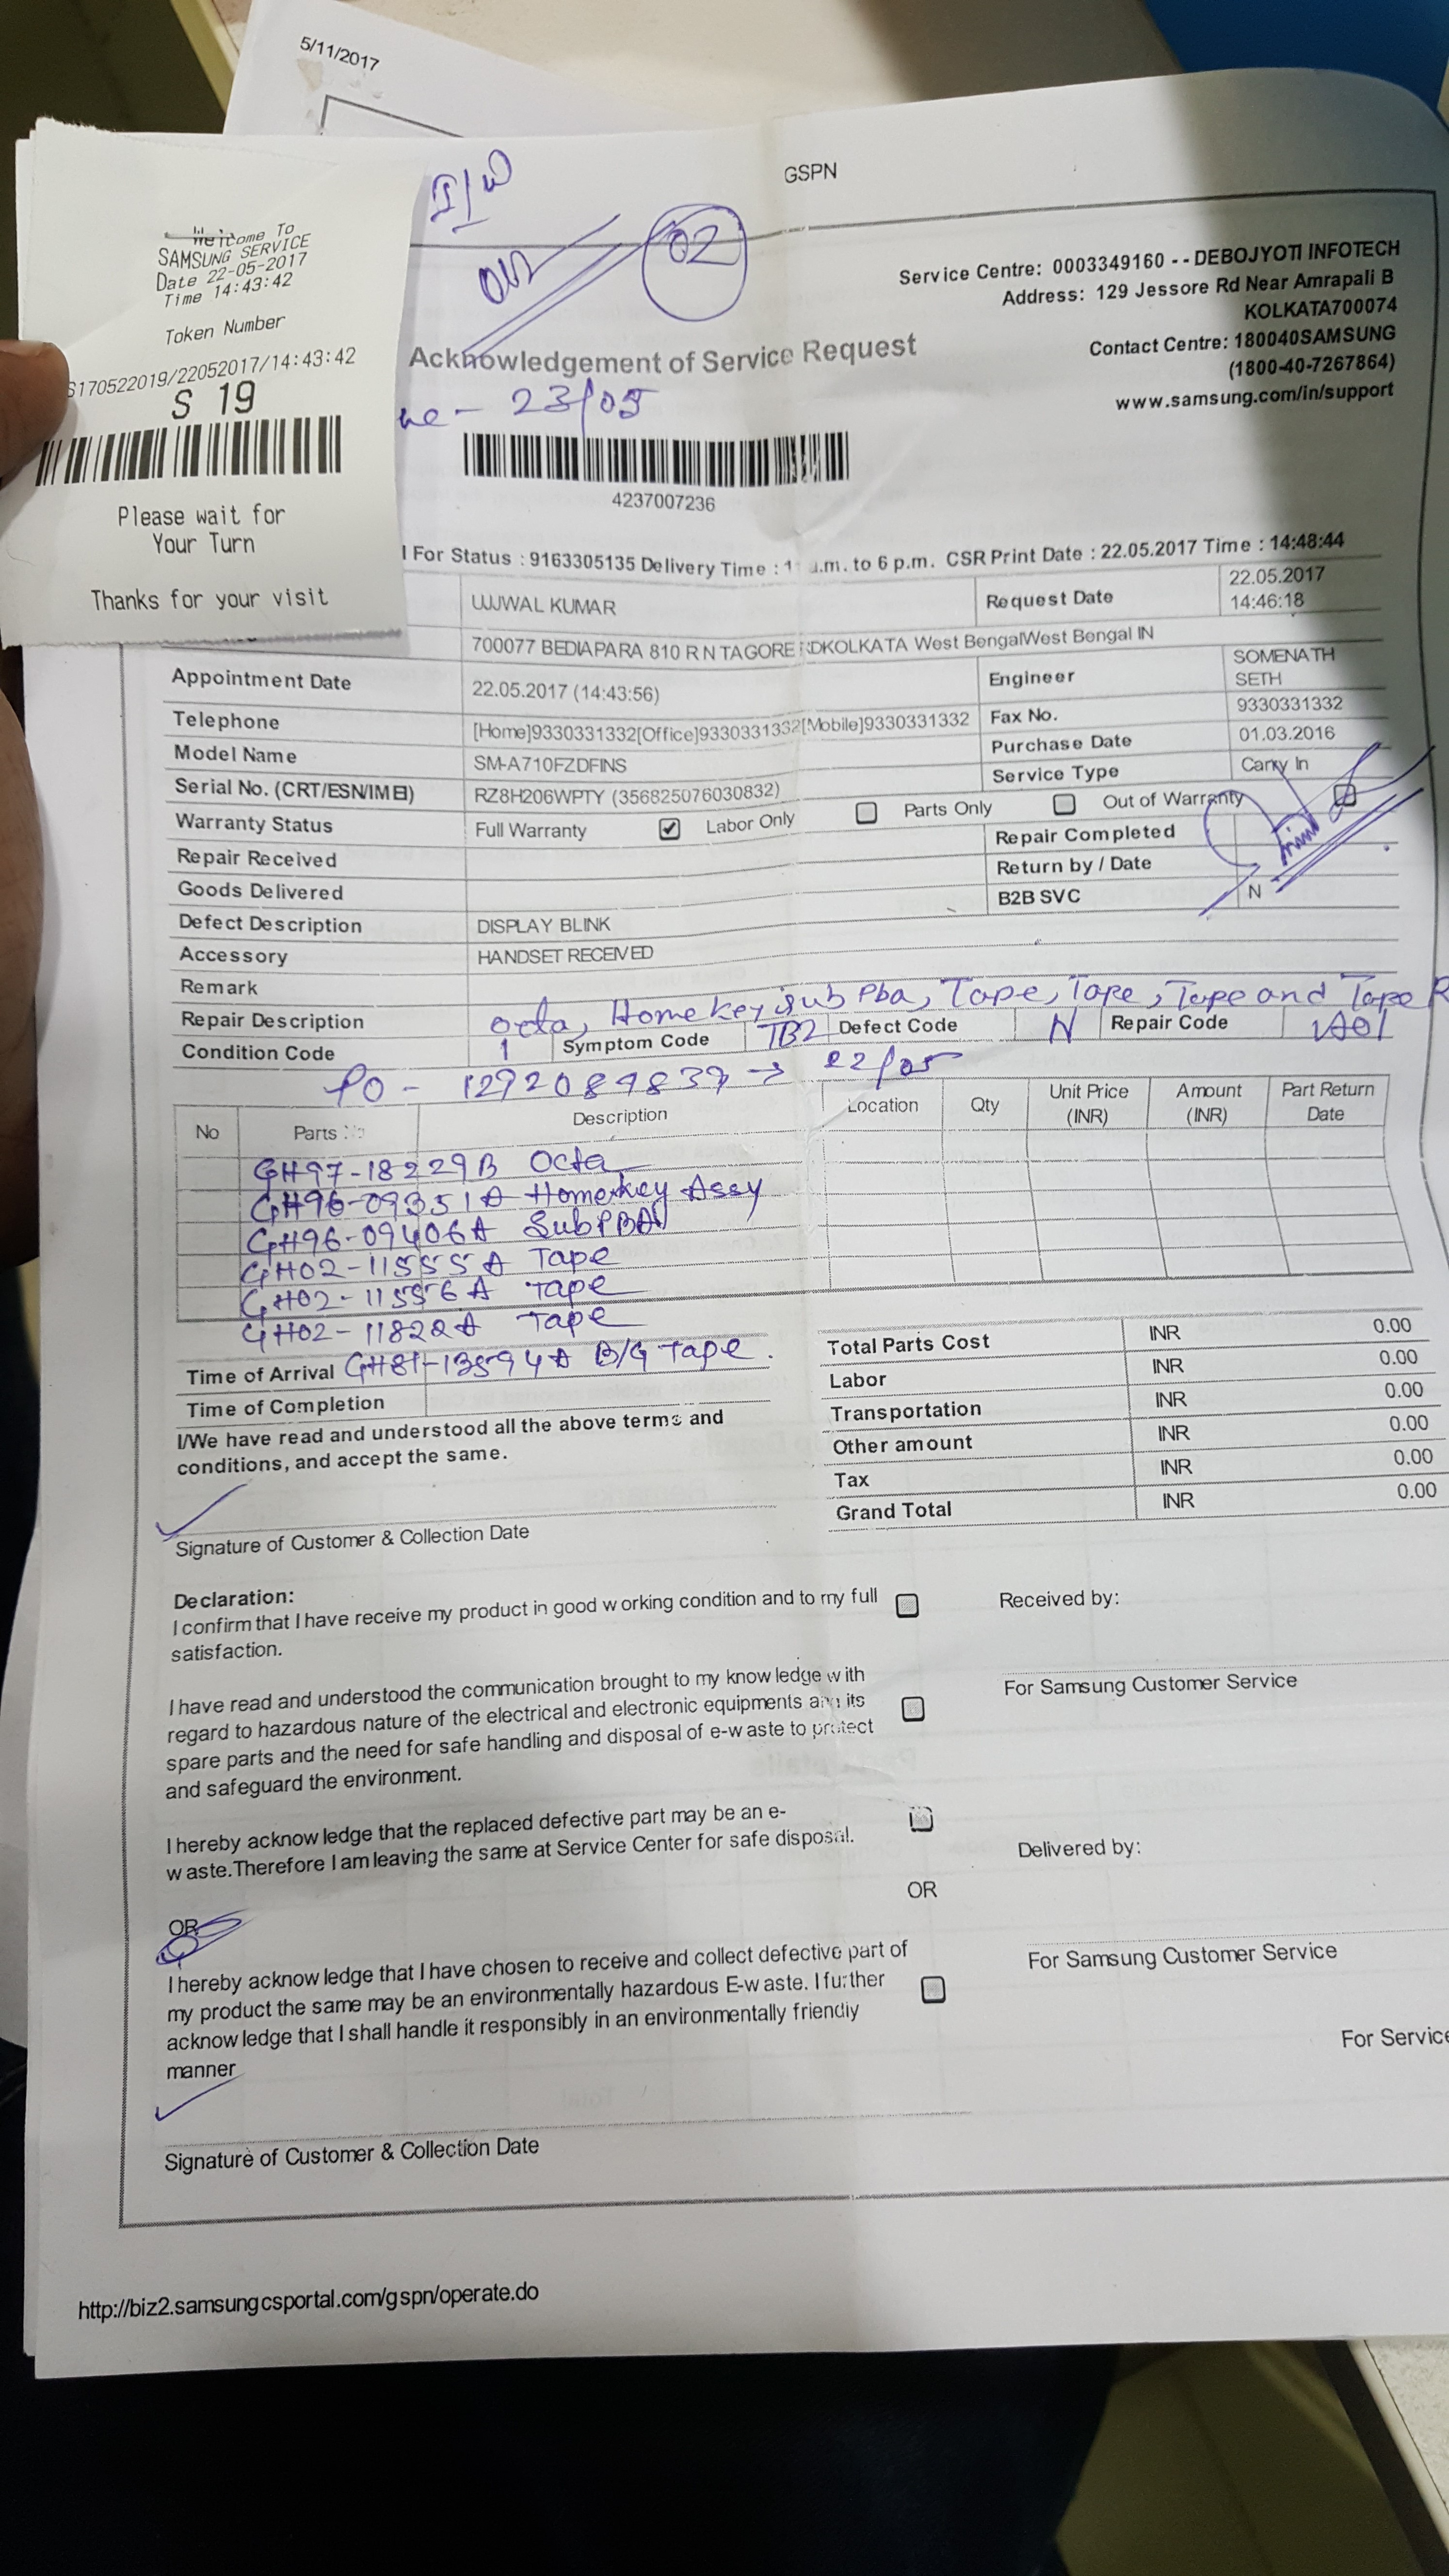 5/11/2017
GSPN
I/W
02
Welcome To
SAMSUNG SERVICE
Date 22-05-2017
Time 14:43:42
Token Number
S170522019/22052017/14:43:42
S 19
Please wait for
Your Turn
Thanks for your visit
Service Centre: 0003349160 - - DEBOJYOTI INFOTECH
Address: 129 Jessore Rd Near Amrapali B
KOLKATA700074
Contact Centre: 180040SAMSUNG
(1800-40-7267864)
www.samsung.com/in/support
Acknowledgement of Service Request
23/05
4237007236
For Status : 9163305135 Delivery Time : 1 a.m. to 6 p.m. CSR Print Date : 22.05.2017 Time : 14:48:44
UJJWAL KUMAR Request Date 22.05.2017
14:46:18
700077 BEDIAPARA 810 R N TAGORE RDKOLKATA West BengalWest Bengal IN
Appointment Date 22.05.2017 (14:43:56) Engineer SOMENATH
SETH
Telephone [Home]9330331332[Office]9330331332[Mobile]9330331332 Fax No. 9330331332
Model Name SM-A710FZDFINS Purchase Date 01.03.2016
Serial No. (CRT/ESN/IMEI) RZ8H206WPTY (356825076030832) Service Type Carry In
Warranty Status Full Warranty Labor Only Parts Only Out of Warranty
Repair Received Repair Completed
Goods Delivered Return by / Date
B2B SVC N
Defect Description DISPLAY BLINK
Accessory HANDSET RECEIVED
Remark
Repair Description octa, Homekey, sub Pba, Tape, Tape, Tape and Tape R
Condition Code 1 Symptom Code TB2 Defect Code N Repair Code A01
PO - 1292089839 → 22/05
No Parts No Description Location Qty Unit Price (INR) Amount (INR) Part Return Date
GH97-18229B Octa
GH96-09351A Homekey Assy
GH96-09406A Sub PBA
GH02-11555A Tape
GH02-11556A Tape
GH02-11822A Tape
GH81-13594A B/G Tape.
Time of Arrival
Time of Completion
I/We have read and understood all the above terms and
conditions, and accept the same.
Total Parts Cost INR 0.00
Labor INR 0.00
Transportation INR 0.00
Other amount INR 0.00
Tax INR 0.00
Grand Total INR 0.00
Signature of Customer & Collection Date
Declaration:
I confirm that I have receive my product in good working condition and to my full
satisfaction.
Received by:
I have read and understood the communication brought to my knowledge with
regard to hazardous nature of the electrical and electronic equipments and its
spare parts and the need for safe handling and disposal of e-waste to protect
and safeguard the environment.
For Samsung Customer Service
I hereby acknowledge that the replaced defective part may be an e-
waste.Therefore I am leaving the same at Service Center for safe disposal.
Delivered by:
OR
OR
I hereby acknowledge that I have chosen to receive and collect defective part of
my product the same may be an environmentally hazardous E-waste. I further
acknowledge that I shall handle it responsibly in an environmentally friendly
manner
For Samsung Customer Service
For Service
Signature of Customer & Collection Date
http://biz2.samsungcsportal.com/gspn/operate.do